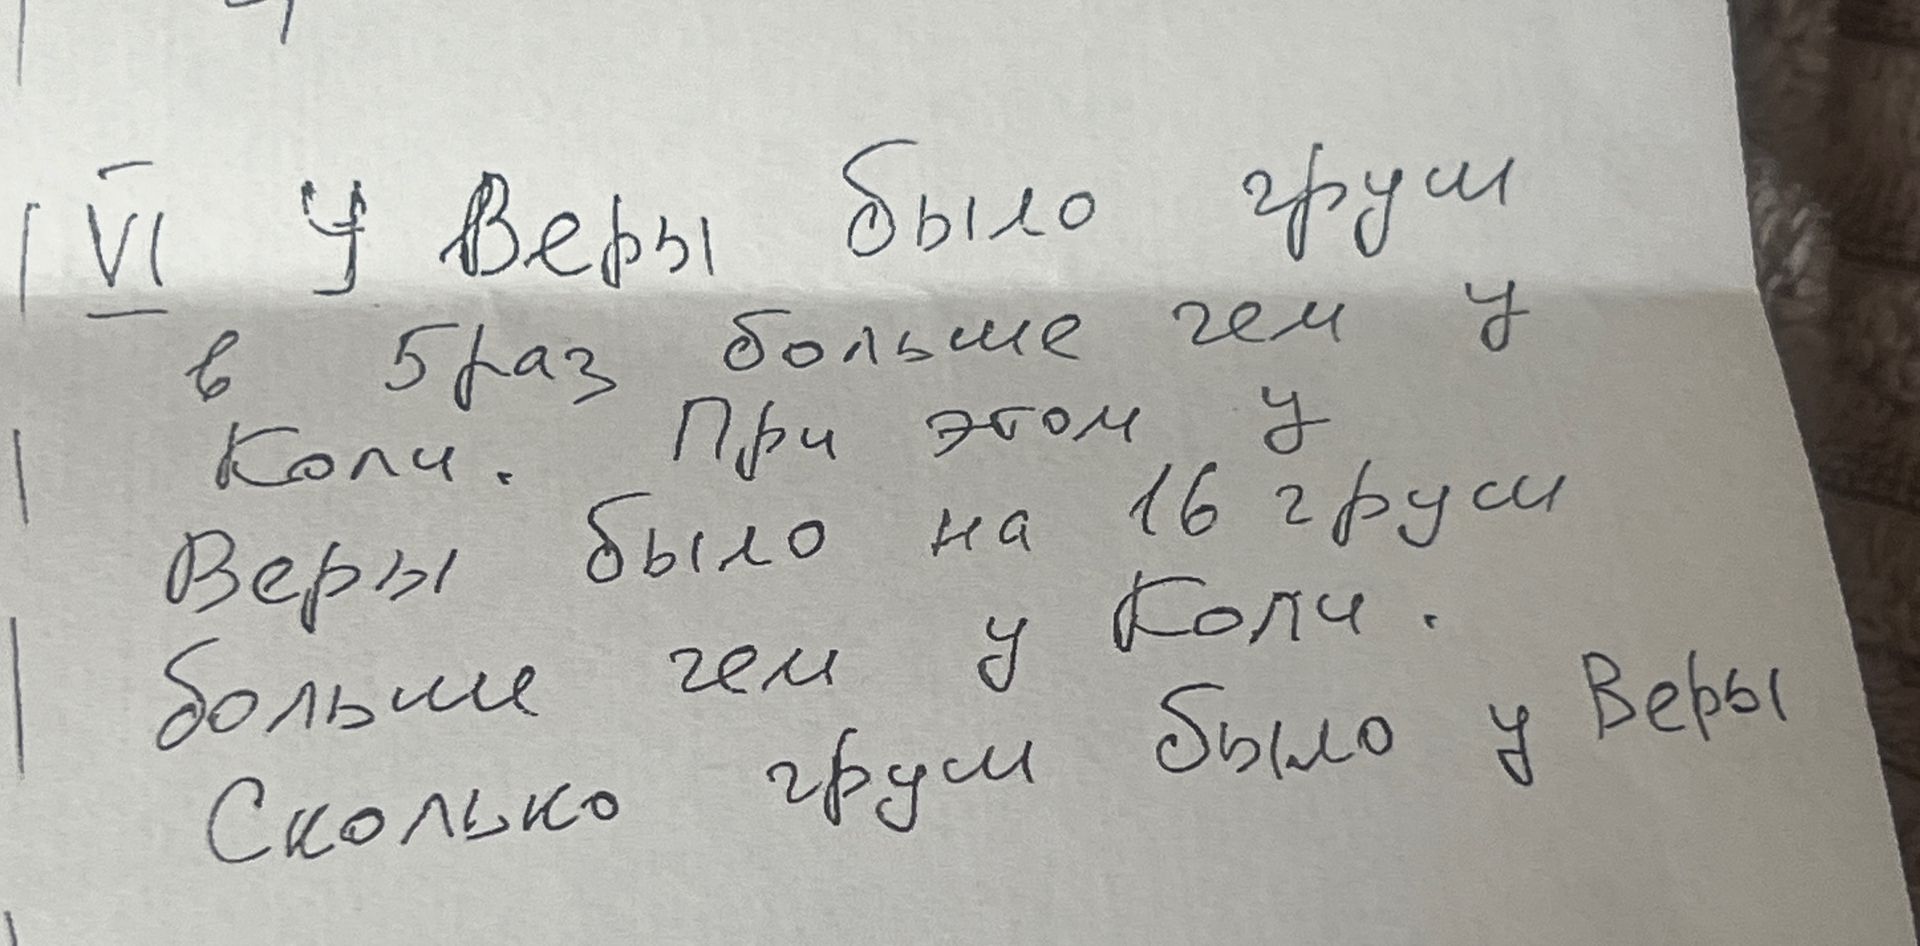 VI У Веры было груш
в 5 раз больше чем у
Коли. При этом у
Веры было на 16 груш
больше чем у Коли.
Сколько груш было у Веры